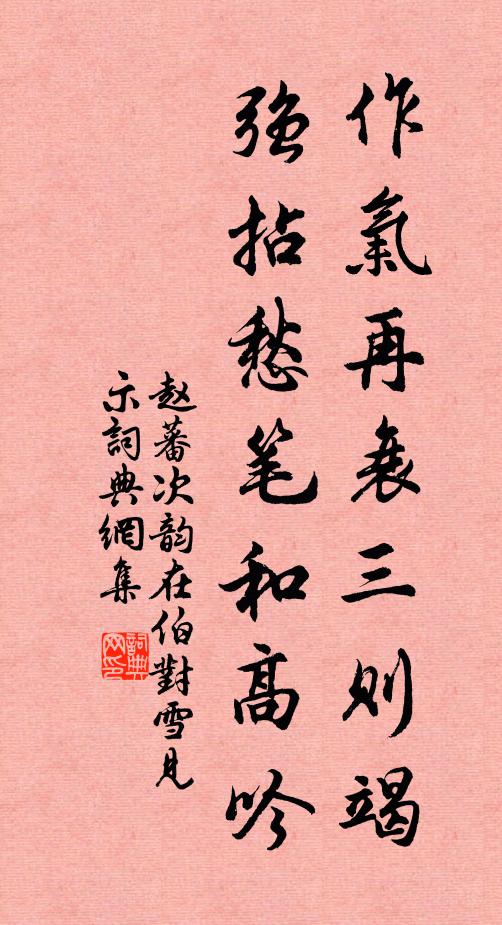 作氣再衰三則竭
強拈愁笔和高吟
赵蕃次韵在伯對雪見
示詞典網集
詞典
网印